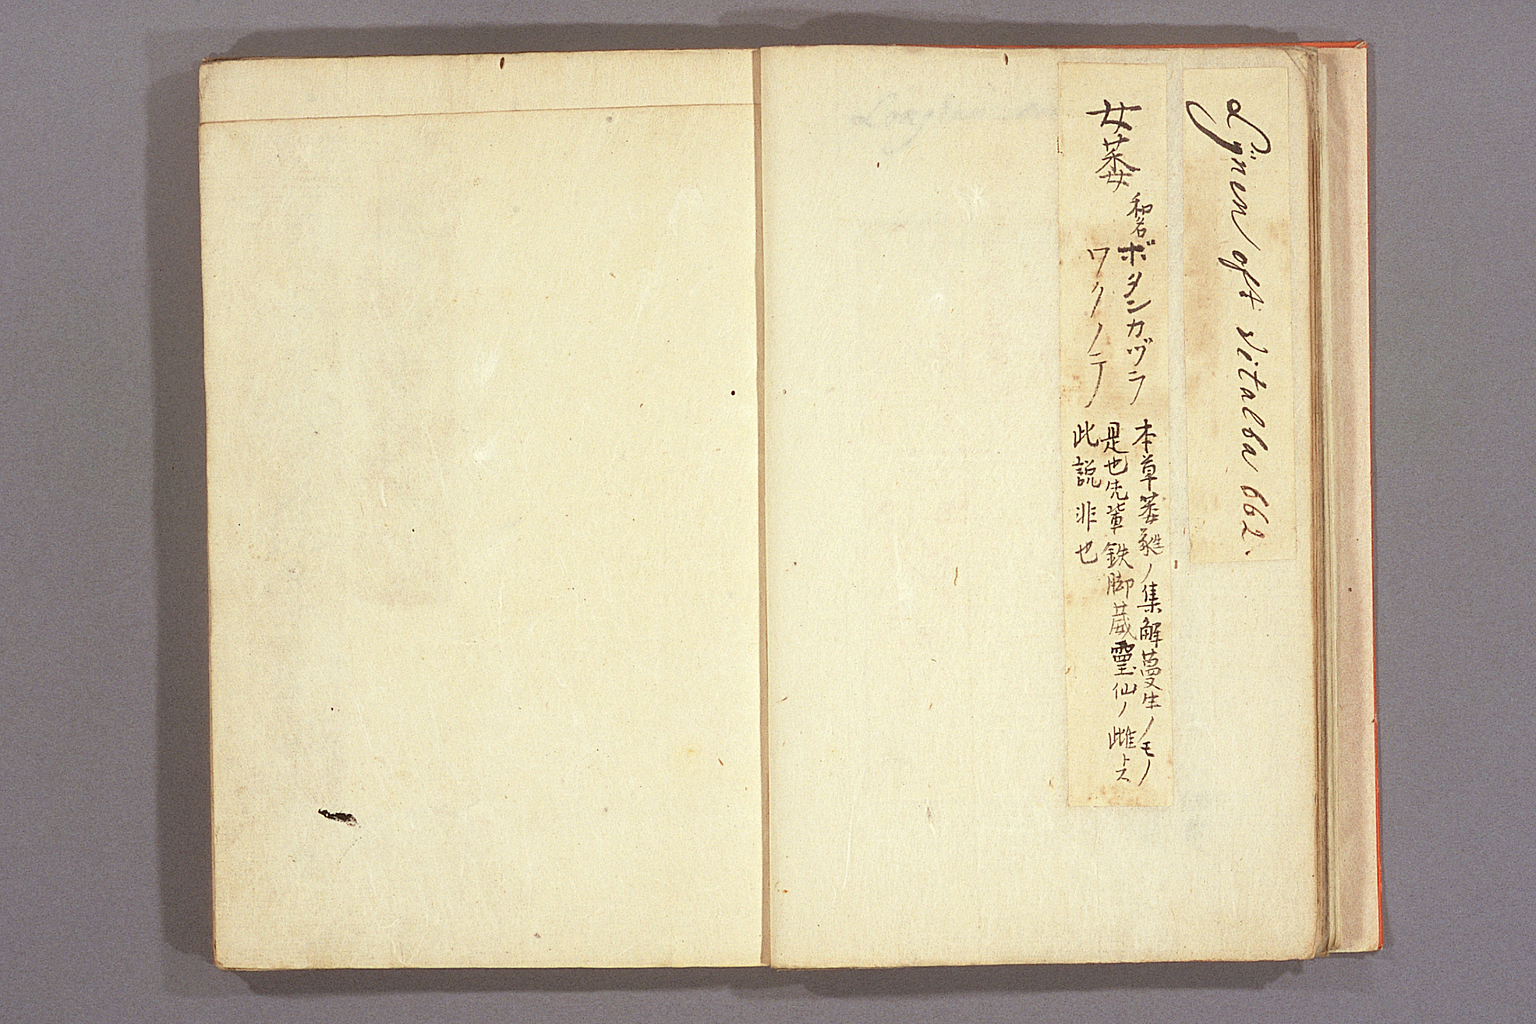 Lijnen oft vitalba 662.
女萎
和名
ボタンカヅラ
ワクノテ
本草萎蕤ノ集解蔓生ノモノ
是也先輩鉄脚葳靈仙ノ雌トス
此説非也